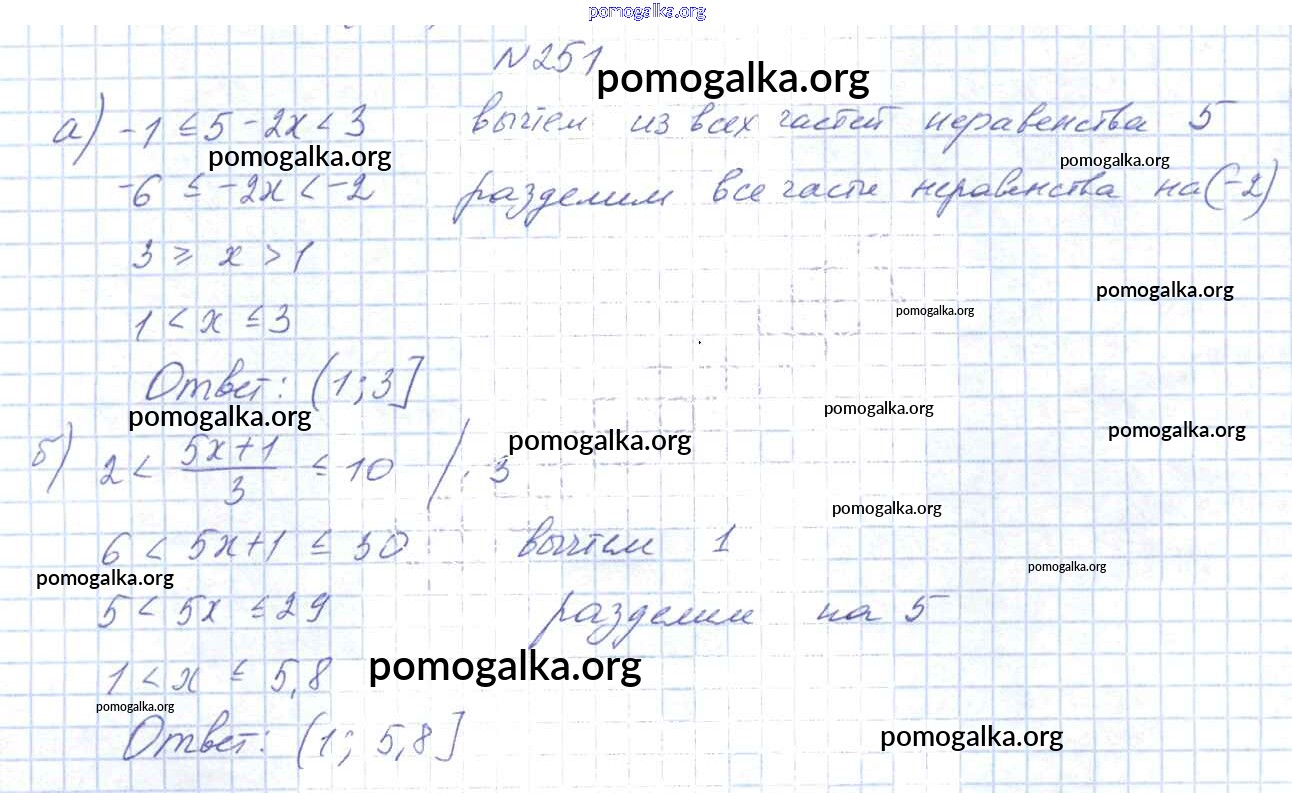 pomogalka.org
N 251
pomogalka.org
а) -1 ≤ 5 - 2x < 3 вычтем из всех частей неравенства 5
pomogalka.org pomogalka.org
-6 ≤ -2x < -2 разделим все части неравенства на (-2)
3 ≥ x > 1
pomogalka.org
pomogalka.org
1 < x ≤ 3
Ответ: (1; 3]
pomogalka.org pomogalka.org
pomogalka.org pomogalka.org
б) 2 < (5x+1)/3 ≤ 10 / · 3
pomogalka.org
6 < 5x+1 ≤ 30 вычтем 1
pomogalka.org pomogalka.org
5 < 5x ≤ 29 разделим на 5
1 < x ≤ 5,8
pomogalka.org
pomogalka.org
Ответ: (1; 5,8]
pomogalka.org